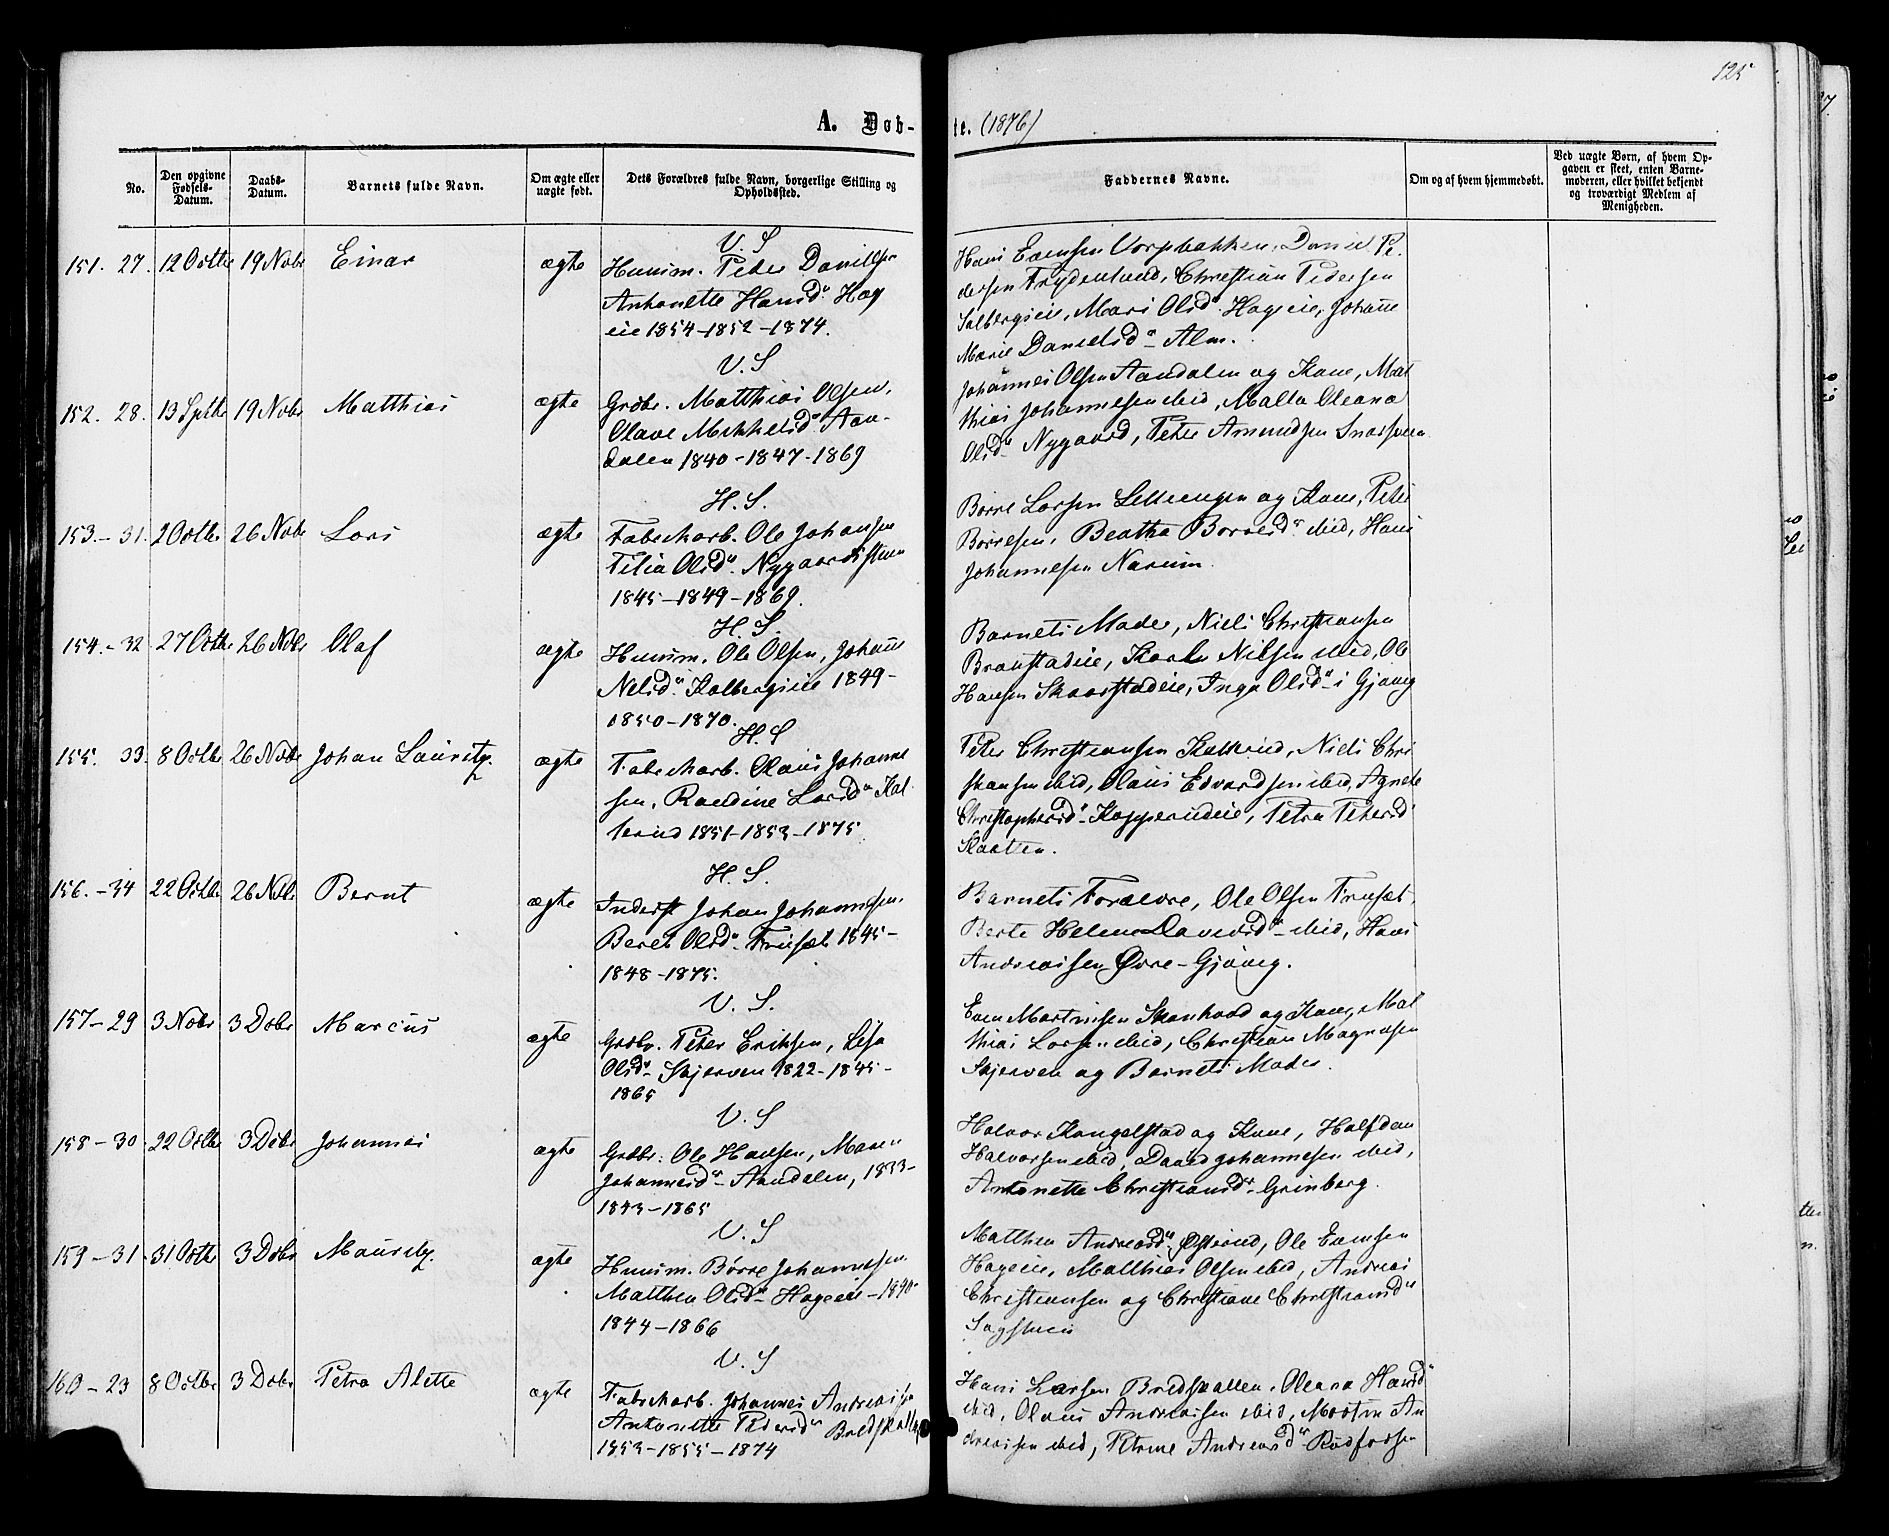 125
A. Døb-
te. (1876)
No.
Den opgivne Fødsels-Datum.
Daabs-Datum.
Barnets fulde Navn.
Om ægte eller uægte født.
Dets Forældres fulde Navn, borgerlige Stilling og Opholdssted.
Faddernes Navne.
Om og af hvem hjemmedøbt.
Ved uægte Børn, af hvem Opgaven er skeet, enten Barnemoderen, eller hvilket bekjendt og troværdigt Medlem af Menigheden.
V. S
151. 27. 12 Octbr 19 Nobr Einar ægte Huusm. Peder Danielsen
Antonette Hansd. Hag
eie 1854-1852-1874.
Hans Evensen Vorpbakken, Daniel Pe-
dersen Frydenlund, Christian Pedersen
Solbergeie, Mari Olsd. Hageeie, Johanne
Marie Danielsd. Alm.
V. S
152. 28. 13 Septbr 19 Nobr Matthias ægte Grdbr. Matthias Olsen,
Olave Mikkelsd. Aan-
dalen 1840-1847-1869
Johannes Olsen Aandalen og Kone, Mat
thias Johannesen ibid, Malta Oleana
Olsd. Nygaard, Peter Amundsen Snarsveen
H. S.
153.-31. 2 Octbr 26 Nobr Lars ægte Fabrikarb. Ole Johansen
Tilia Olsd. Nygaardsstuen
1845-1849-1869.
Børre Larsen Selliengen og Kone, Peter
Børresen, Beathe Børresd. ibid, Hans
Johannesen Narum.
H. S.
154.-32 27 Octbr 26 Nobr Olaf ægte Huusm. Ole Olsen, Johanne
Nelsd. Kolbergseie 1849-
1850-1870.
Barnets Moder, Niels Christiansen
Branstadeie, Karen Nilsen ibid, Ole
Hansen Skaarstadeie, Inga Olsd. i Gjøvig
H. S
155. 33. 8 Octbr 26 Nobr Johan Lauritz. ægte Fabrikarb. Olaus Johanne
sen, Randine Larsd. Kal
lerud 1851-1853-1875.
Peter Christiansen Kallerud, Niels Chri
stiansen ibid, Olaus Edvardsen ibid, Agnete
Christophersd. Kopperudeie, Petra Petersd
Slaatten.
H. S.
156.-34 22 Octbr 26 Nobr Bernt ægte Inderst Johan Johannesen,
Beret Olsd. Fruesæt 1845-
1848-1875.
Barnets Forældre, Ole Olsen Fruesæt,
Berte Helene Davidsd. ibid, Hans
Andreassen Øvre-Gjøvig.
V. S.
157-29 3 Nobr 3 Debr Marcus ægte Grdbr. Peter Eriksen, Lisa
Olsd. Skjerven 1822-1845-
1865
Even Martinsen Skonhovd og Kone, Mat
thias Larsen ibid, Christian Magnusen
Skjerven og Barnets Moder.
V. S
158-30 22 Octbr 3 Debr Johannes ægte Grdbr. Ole Hansen, Maren
Johannesd. Aandalen, 1833-
1843-1865
Halvor Kongelstad og Kone, Halfdan
Halvorsen ibid, David Johannesen ibid,
Antonette Christiansd. Grinberg.
V. S
159-31. 31 Octbr 3 Debr Mauritz. ægte Huusm. Børre Johannesen
Matthea Olsd. Hageeie-1840-
1844-1866
Matthea Andreasd. Østerud, Ole Evensen
Hageeie, Matthias Olsen ibid, Andreas
Christiansen og Christiane Christiansd.
Sagstuen
V. S
160-23 8 Octbr 3 Debr Petra Alette ægte Fabrikarb. Johannes Andreassen
Antonette Pedersd. Bredskallen
1853-1855-1874
Hans Larsen Bredskallen, Oleana Hansd.
ibid, Olaus Andreassen ibid, Morten An
dreassen ibid, Petrine Andreasd. Rødfodsen